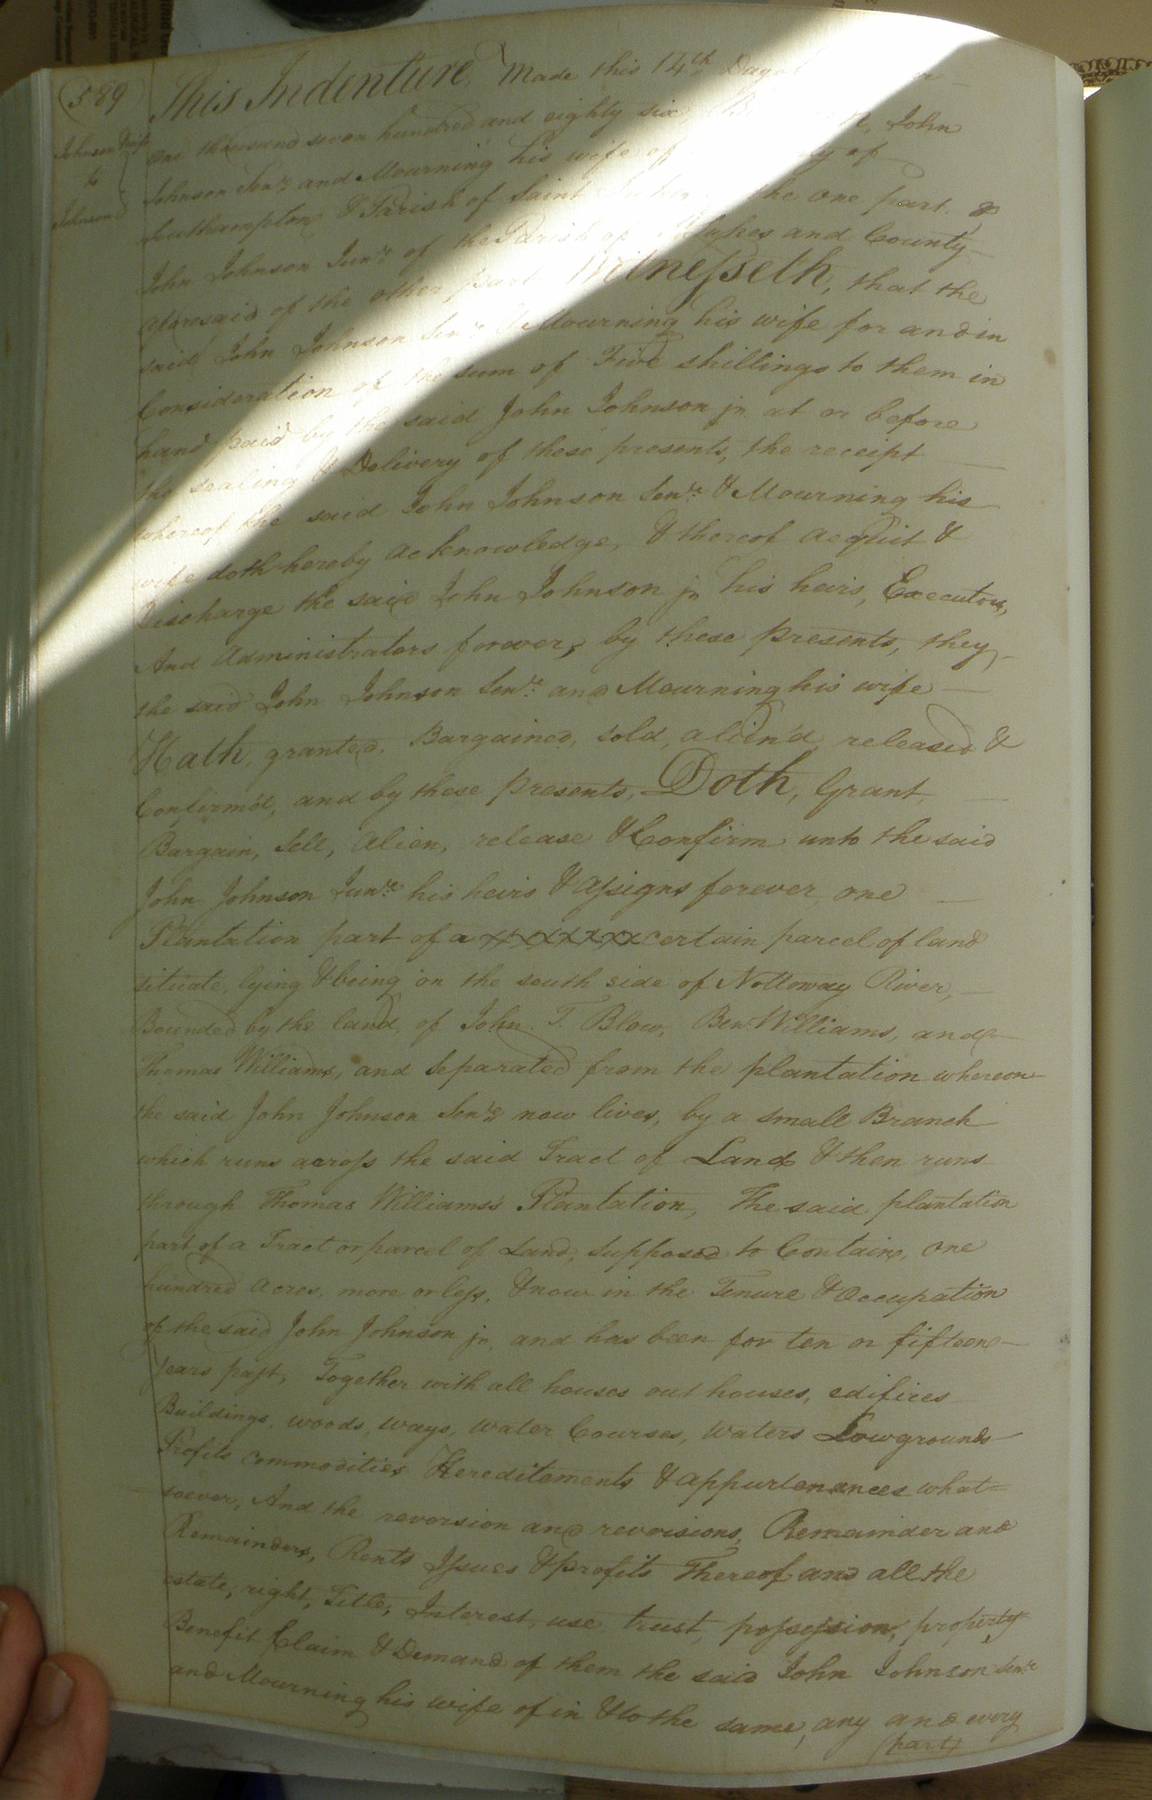 589
Johnson
to
Johnson
This Indenture Made this 14th Day
one thousand seven hundred and eighty six John
Johnson Senr. and Mourning his wife of
Southampton & Parish of Saint the one part &
John Johnson Junr. of the Parish of St. Lukes and County
aforesaid of the other part Witnesseth, that the
said John Johnson Senr. & Mourning his wife for and in
Consideration of the sum of Five shillings to them in
hand paid by the said John Johnson jr. at or before
the sealing & Delivery of these presents, the receipt
whereof the said John Johnson Senr. & Mourning his
wife doth hereby acknowledge, & thereof acquit &
Discharge the said John Johnson jr. his heirs, Executors,
And Administrators forever, by these Presents, they
the said John Johnson Senr. and Mourning his wife
Hath, granted, Bargained, sold, alien'd, released &
Confirm'd, and by these Presents, Doth, Grant,
Bargain, Sell, Alien, release & Confirm unto the said
John Johnson Junr. his heirs & assigns forever one
Plantation part of a xxxxxxx certain parcel of land
situate, lying & being on the south side of Nottoway River,
Bounded by the land of John T. Blow, Ben Williams, and
Thomas Williams, and Separated from the plantation whereon
the said John Johnson Senr. now lives, by a small Branch
which runs across the said Tract of Land & then runs
through Thomas Williams's Plantation, The said plantation
part of a Tract or parcel of Land, Supposed to Contain, one
hundred Acres, more or less, & now in the Tenure & Occupation
of the said John Johnson jr. and has been for ten or fifteen
Years past, Together with all houses out houses, edifices
Buildings, woods, ways, water Courses, waters Lowgrounds
Profits commodities Hereditements & appurtenances what=
soever, And the reversion and revoisions, Remainder and
Remainders, Rents Issues & profits Thereof and all the
estate, right, Title, Interest, use trust, possession, property
Benefit Claim & Demand of them the said John Johnson Senr.
and Mourning his wife of in & to the same, any and every
(part)